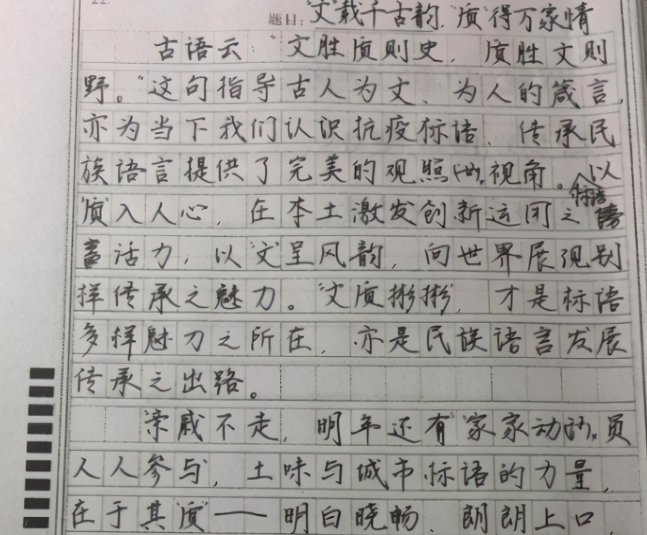 22.
题目："文"载千古韵,"质"得万家情
古语云："文胜质则史,质胜文则
野。"这句指导古人为文、为人的箴言,
亦为当下我们认识抗疫标语、传承民
族语言提供了完美的观照 视角。以
"质"入人心,在本土激发创新运用之标语
活力,以"文"呈风韵,向世界展现别
样传承之魅力。"文质彬彬",才是标语
多样魅力之所在,亦是民族语言发展
传承之出路。
"亲戚不走,明年还有""家家动员,
人人参与",土味与城市标语的力量,
在于其"质"——明白晓畅、朗朗上口,